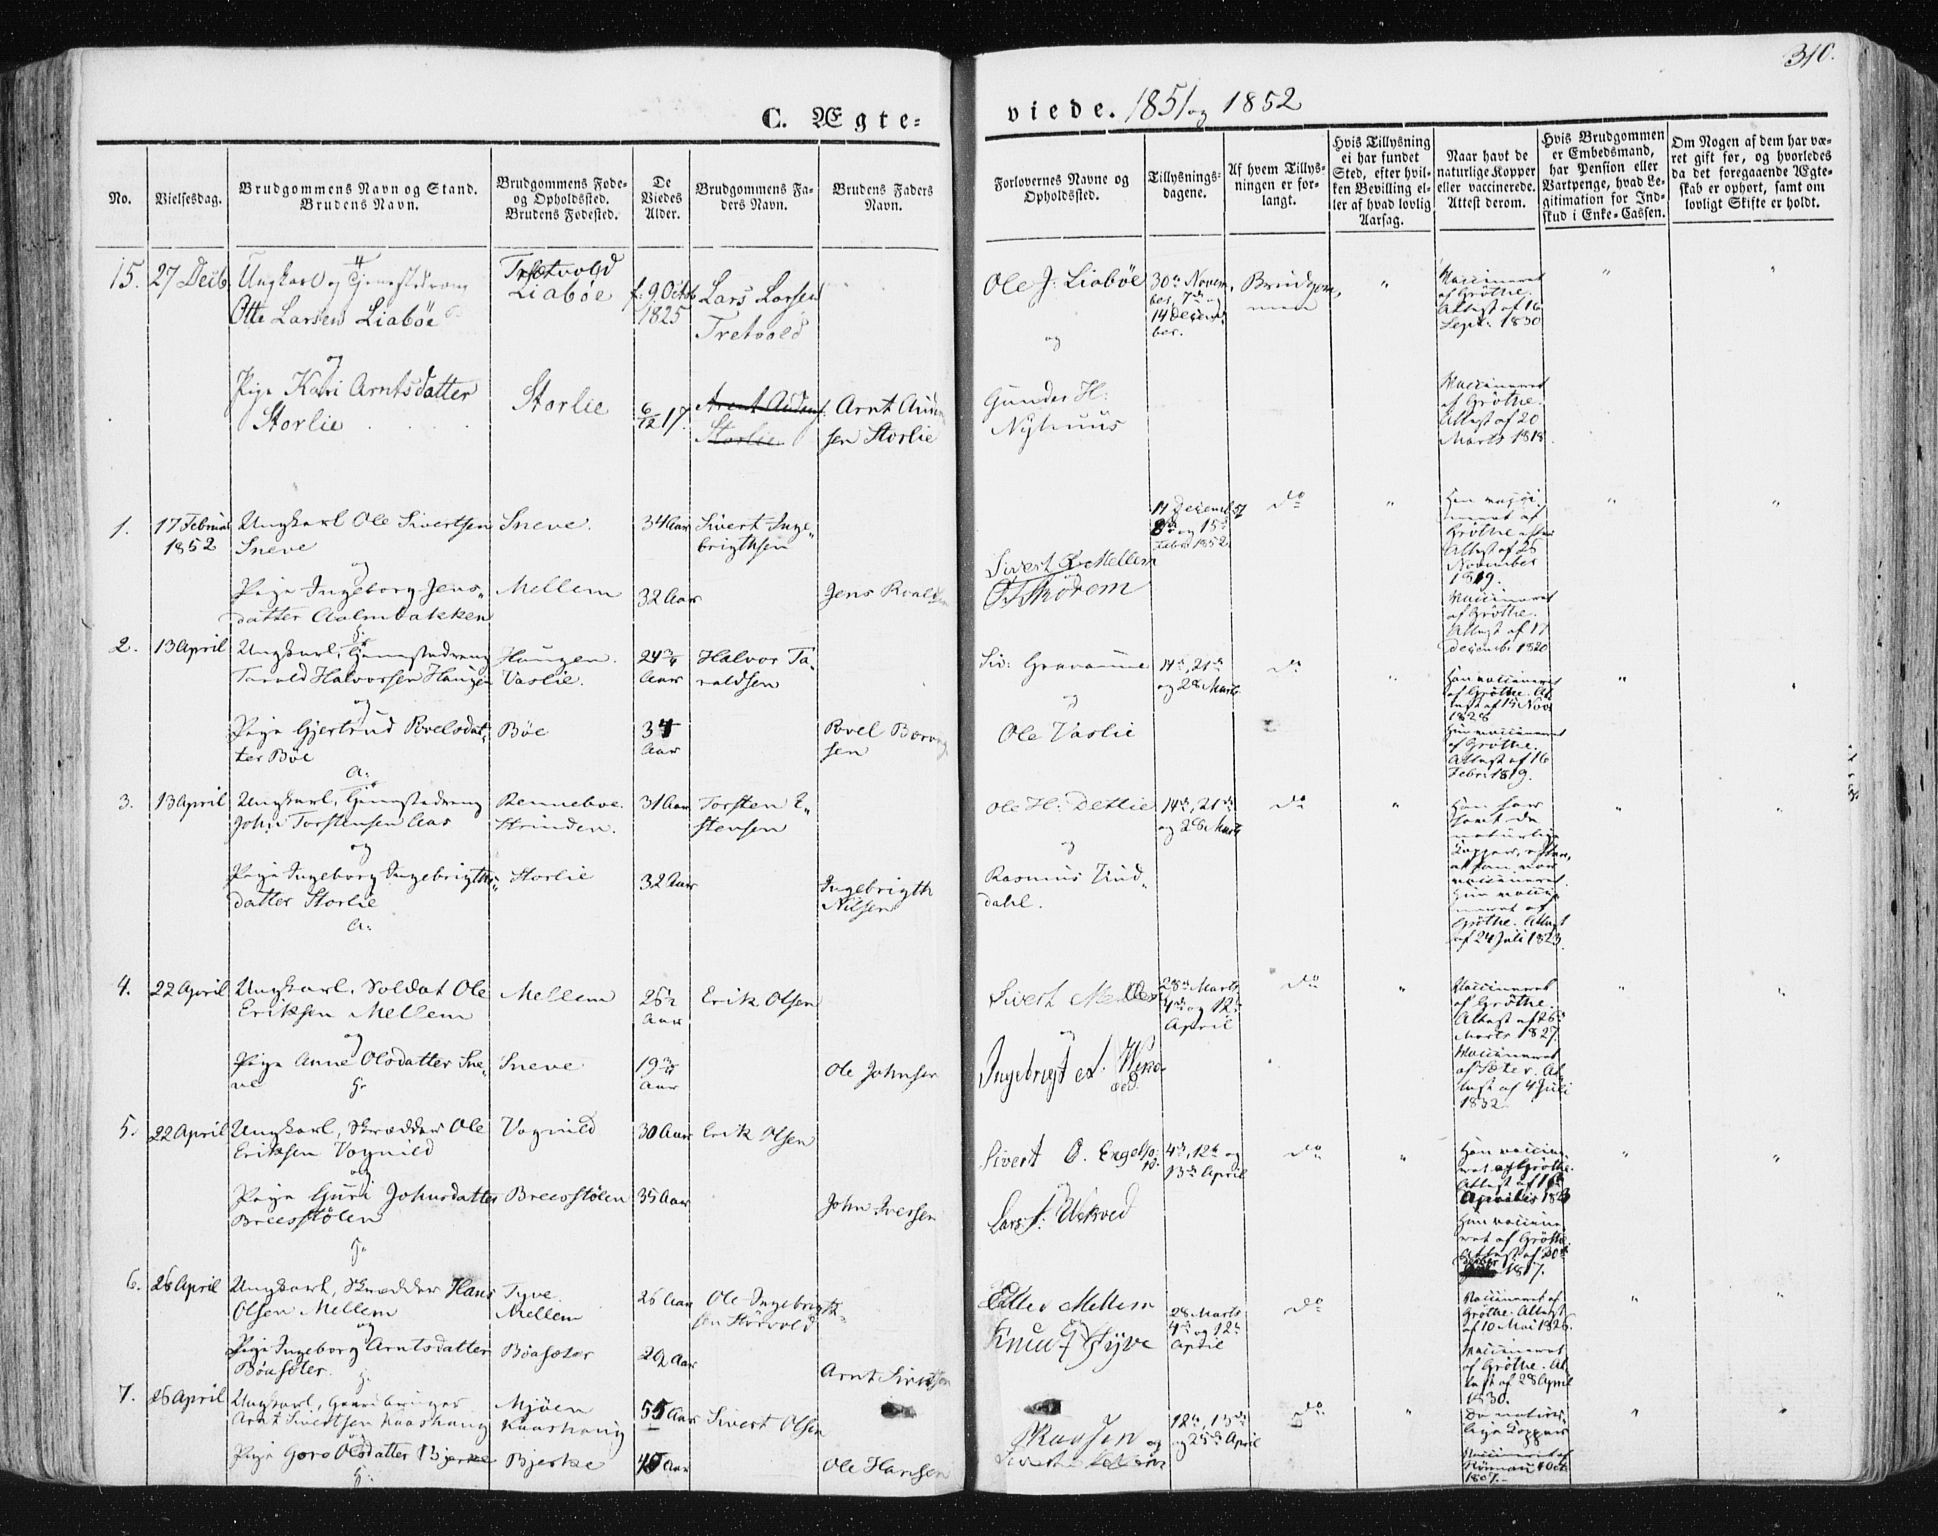 310.
C. Ægte=
viede. 1851 og 1852
No.
Vielsesdag.
Brudgommens Navn og Stand.
Brudens Navn.
Brudgommens Føde-
og Opholdssted.
Brudens Fødested.
De
Viedes
Alder.
Brudgommens Fa-
ders Navn.
Brudens Faders
Navn.
Forlovernes Navne og
Opholdssted.
Tillysnings-
dagene.
Af hvem Tillys-
ningen er for-
langt.
Hvis Tillysning
ei har fundet
Sted, efter hvil-
ken Bevilling el-
ler af hvad lovlig
Aarsag.
Naar havt de
naturlige Kopper
eller vaccinerede.
Attest derom.
Hvis Brudgommen
er Embedsmand,
har Pension eller
Vartpenge, hvad Le-
gitimation for Ind-
skud i Enke-Cassen.
Om Nogen af dem har væ-
ret gift før, og hvorledes
da det foregaaende Ægte-
skab er ophørt, samt om
lovligt Skifte er holdt.
15. 27 Decb.
Ungkarl og Tjenestedreng
Otte Larsen Liabøe
Tretvold
Liabøe
f. 9 Octb
1825
Lars Larsen
Tretvold
Ole J. Liabøe
30te Novem-
ber, 7de og
14 Decem-
ber.
Brudgom-
men
"
Vaccineret
af Grøthe.
Attest af 16
Sept. 1830
"
"
og
Pige Kari Arntsdatter
Storlie
Storlie
6/12 17.
Arnt Audens.
Storlie
Arnt Auden
sen Storlie
og
Gunder H:
Nyhuus
Vaccineret
af Grøthe.
Attest af 20
Marts 1818.
1. 17 Februar
1852
Ungkarl Ole Sivertsen
Sneve
Sneve.
34 Aar
Sivert Inge-
brigthsen
8de og 15de
Febr 1852
do
"
Grøthe
Attest af 25
November
1819.
"
"
og
Pige Ingeborg Jens-
datter Aalmbakken
Mellem
32 Aar
Jens Roald
Sivert Mellem
Vaccineret
af Grøthe.
Attest af 17
December 1820
2. 13 April
Ungkarl, Tjenestedreng
Tarald Halvorsen Haugen
Haugen.
Vaslie.
24 3/4
Aar
Halvor Ta-
raldsen
Siv: Gravaune
14de, 21de
og 28 Marts
do
"
Han vaccineret
af Grøthe. At-
test af 15 Nov
1828
"
og
Pige Gjertrud Povelsdat-
ter Bøe
Bøe
34
Aar
Povel
sen
og
Ole Vaslie
Hun vaccineret
af Grøthe.
Attest af 16
Febr 1819.
A:
3. 13 April
Ungkarl, Tjenestedreng
John Torstensen Aas
Renneboe.
Strinden.
31 Aar
Torsten E-
stensen
Ole H: Detlie
14de, 21de
og 28 Marts
do
"
Han har
havt de
naturlige
Kopper, efter
at han var
vaccineret.
"
"
og
Pige Ingeborg Ingebrigths-
datter Storlie
Storlie
32 Aar
Ingebrigth
Nilsen
og
Rasmus Lind-
dahl.
Hun vacci-
neret af
Grøthe. Attest
af 24 Juli 1823.
A:
4. 22 April
Ungkarl, Soldat Ole
Eriksen Mellem
Mellem
25 1/2
Aar
Erik Olsen
Sivert Mellem
28de Marts
4de og 12te
April
do
"
Vaccineret
af Grøthe.
Attest af 26
Marts 1827.
"
"
og
Pige Anne Olsdatter Sne-
ve
Sneve
19 3/4
Aar
Ole Johnsen
og
Ingebrigt
Vaccineret
af Sæter. At-
test af 4 Juli
1832.
5. 22 April
Ungkarl, Skrædder Ole
Eriksen Vognild
Vognild
30 Aar
Erik Olsen
Sivert O. Engelsjo-
4de, 12te og
13de April
do
"
Han vaccine-
ret af Grøthe.
"
"
og
Pige Guri Johnsdatter
Breesstølen
Breesstølen
35 Aar
John Iversen
og
Lars Uekved
Hun vaccine-
ret af Grøthe.
Attest af 20de
1817.
6. 26 April
Ungkarl, Skrædder Hans
Olsen Mellem
Tyve.
Mellem
26 Aar
Ole Ingebrigt-
sen Storvold
Mellem
28 Marts
4de og 12te
April
do
Vaccineret af
Grøthe. Attest
af 10 Mai 1826.
"
"
og
Pige Ingeborg Arntsdatter
Bøasæter.
Bøasæter
29 Aar
Arnt Sivertsen
og
Knut Tyve
Vaccineret
af Grøthe. At-
test af 28 April
1830.
7. 26 April
Ungkarl, Gaardbruger
Arnt Sivertsen Kaashaug
Mjøen
Kaashaug
55 Aar
Sivert Olsen
og
12te, 13de
og 25de April
do
"
De natur-
lige Kopper
"
"
og
Pige Goro Olsdatter Bjerke
Bjerke
45 Aar
Ole Hansen
Sivert
Vaccineret af
1807.